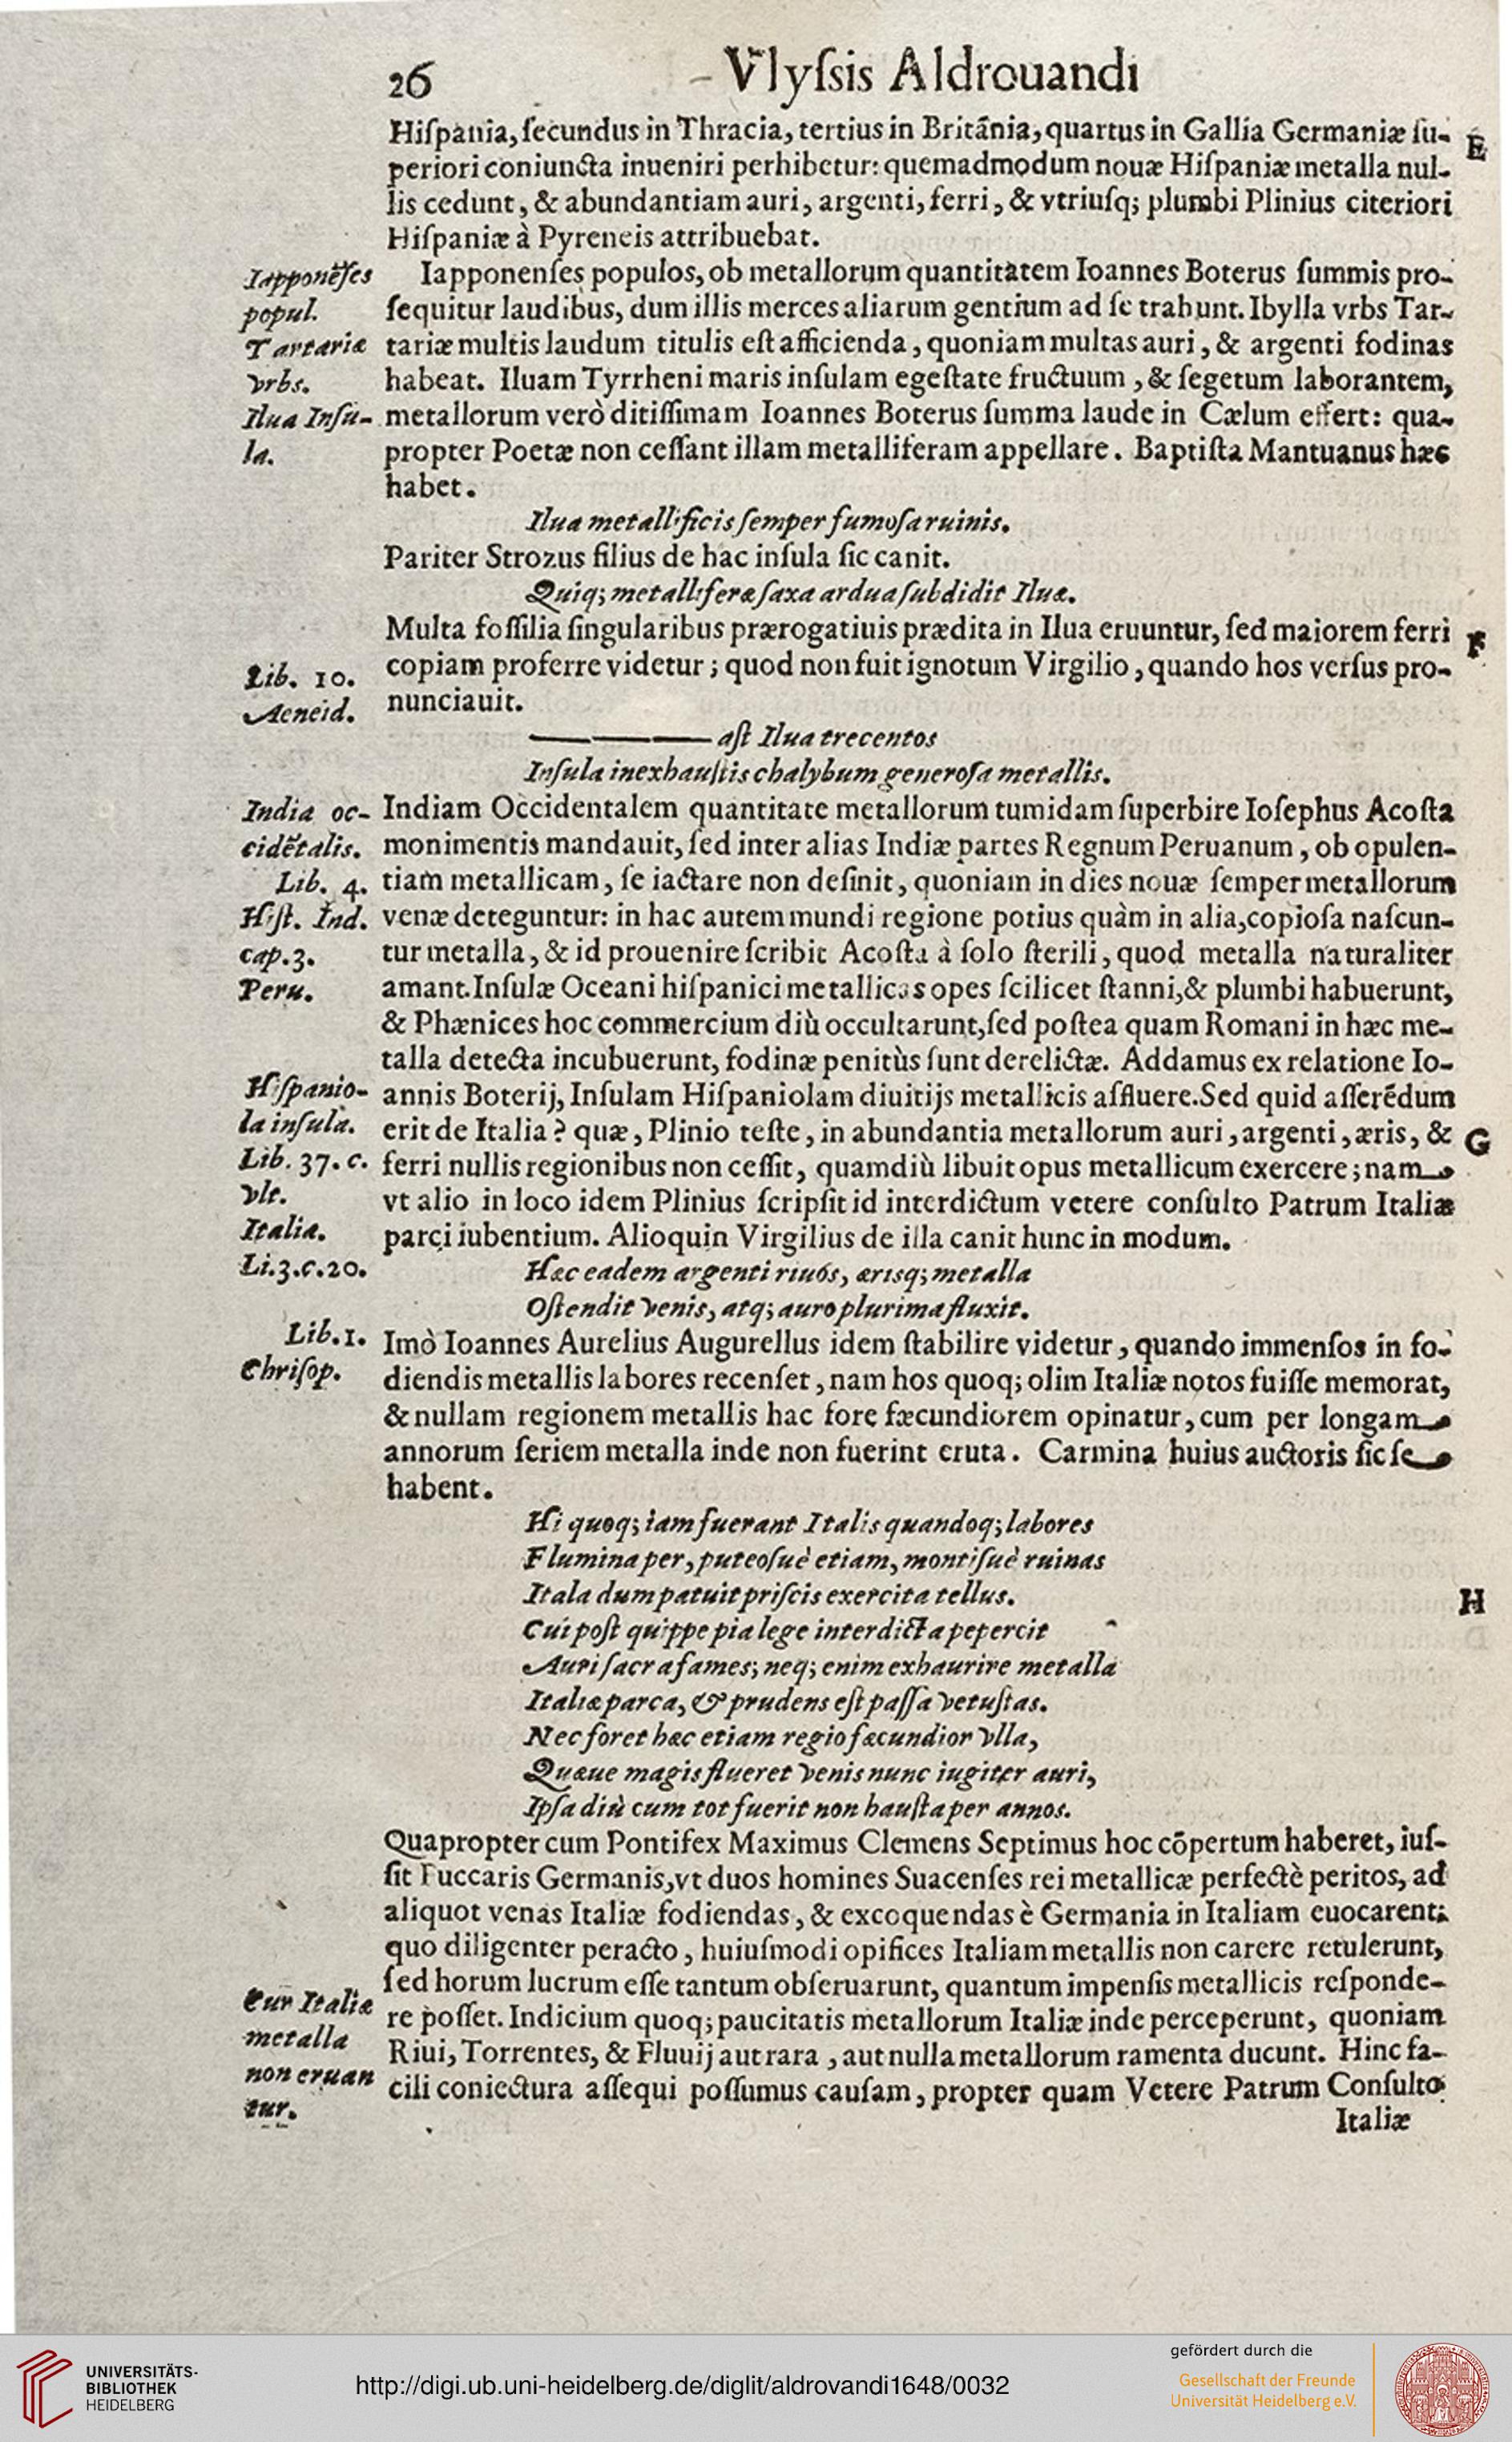 26
Vlyſsis Aldrouandi
Hiſpania, ſecundus in Thracia, tertius in Britãnia, quartus in Gallia Germaniæ ſu-
E
periori coniuncta inueniri perhibetur: quemadmodum nouæ Hiſpaniæ metalla nul-
lis cedunt, & abundantiam auri, argenti, ferri, & vtriuſq; plumbi Plinius citeriori
Hiſpaniæ à Pyreneis attribuebat.
Iapponẽſes
popul.
Tartariæ
vrbs.
Ilua Inſu-
la.
Iapponenſes populos, ob metallorum quantitatem Ioannes Boterus ſummis pro-
ſequitur laudibus, dum illis merces aliarum gentium ad ſe trahunt. Ibylla vrbs Tar-
tariæ multis laudum titulis eſt afficienda, quoniam multas auri, & argenti fodinas
habeat. Iluam Tyrrheni maris inſulam egeſtate fructuum, & ſegetum laborantem,
metallorum verò ditiſſimam Ioannes Boterus ſumma laude in Cælum effert: qua-
propter Poetæ non ceſſant illam metalliferam appellare. Baptiſta Mantuanus hæc
habet.
Ilua metallificis ſemper fumoſa ruinis.
Pariter Strozus filius de hac inſula ſic canit.
Quiq; metalliferæ ſaxa ardua ſubdidit Iluæ.
Multa foſſilia ſingularibus prærogatiuis prædita in Ilua eruuntur, ſed maiorem ferri
F
Lib. 10.
Aeneid.
copiam proferre videtur; quod non fuit ignotum Virgilio, quando hos verſus pro-
nunciauit.
——— aſt Ilua trecentos
Inſula inexhauſtis chalybum generoſa metallis.
India oc-
cidẽtalis.
Lib. 4.
Hiſt. Ind.
cap. 3.
Peru.
Indiam Occidentalem quantitate metallorum tumidam ſuperbire Ioſephus Acoſta
monimentis mandauit, ſed inter alias Indiæ partes Regnum Peruanum, ob opulen-
tiam metallicam, ſe iactare non deſinit, quoniam in dies nouæ ſemper metallorum
venæ deteguntur: in hac autem mundi regione potius quàm in alia, copioſa naſcun-
tur metalla, & id prouenire ſcribit Acoſta à ſolo ſterili, quod metalla naturaliter
amant. Inſulæ Oceani hiſpanici metallicas opes ſcilicet ſtanni, & plumbi habuerunt,
& Phænices hoc commercium diù occultarunt, ſed poſtea quam Romani in hæc me-
talla detecta incubuerunt, fodinæ penitùs ſunt derelictæ. Addamus ex relatione Io-
Hiſpanio-
la inſula.
Lib. 37. c.
vlt.
Italia.
Li. 3. c. 20.
annis Boterij, Inſulam Hiſpaniolam diuitijs metallicis affluere. Sed quid aſſerẽdum
erit de Italia? quæ, Plinio teſte, in abundantia metallorum auri, argenti, æris, &
G
ferri nullis regionibus non ceſſit, quamdiù libuit opus metallicum exercere; nam
vt alio in loco idem Plinius ſcripſit id interdictum vetere conſulto Patrum Italiæ
parci iubentium. Alioquin Virgilius de illa canit hunc in modum.
Hæc eadem argenti riuós, ærisq; metalla
Oſtendit venis, atq; auro plurima fluxit.
Lib. 1.
Chriſop.
Imò Ioannes Aurelius Augurellus idem ſtabilire videtur, quando immenſos in fo-
diendis metallis labores recenſet, nam hos quoq; olim Italiæ notos fuiſſe memorat,
& nullam regionem metallis hac fore fæcundiorem opinatur, cum per longam
annorum ſeriem metalla inde non fuerint eruta. Carmina huius auctoris ſic ſe
habent.
Hi quoq; iam fuerant Italis quandoq; labores
Flumina per, puteoſuè etiam, montiſuè ruinas
Itala dum patuit priſcis exercita tellus.
H
Cui poſt quippe pia lege interdicta pepercit
Auri ſacra fames; neq; enim exhaurire metalla
Italiæ parca, & prudens eſt paſſa vetuſtas.
Nec foret hæc etiam regio fæcundior vlla,
Quæue magis flueret venis nunc iugiter auri,
Ipſa diù cum tot fuerit non hauſta per annos.
Quapropter cum Pontifex Maximus Clemens Septimus hoc cõpertum haberet, iuſ-
ſit Fuccaris Germanis, vt duos homines Suacenſes rei metallicæ perfectè peritos, ad
aliquot venas Italiæ fodiendas, & excoquendas è Germania in Italiam euocarent;
quo diligenter peracto, huiuſmodi opifices Italiam metallis non carere retulerunt,
ſed horum lucrum eſſe tantum obſeruarunt, quantum impenſis metallicis reſponde-
Cur Italiæ
metalla
non eruan
tur.
re poſſet. Indicium quoq; paucitatis metallorum Italiæ inde perceperunt, quoniam
Riui, Torrentes, & Fluuij aut rara, aut nulla metallorum ramenta ducunt. Hinc fa-
cili coniectura aſſequi poſſumus cauſam, propter quam Vetere Patrum Conſulto
Italiæ
UNIVERSITÄTS-
BIBLIOTHEK
HEIDELBERG
http://digi.ub.uni-heidelberg.de/diglit/aldrovandi1648/0032
gefördert durch die
Gesellschaft der Freunde
Universität Heidelberg e.V.